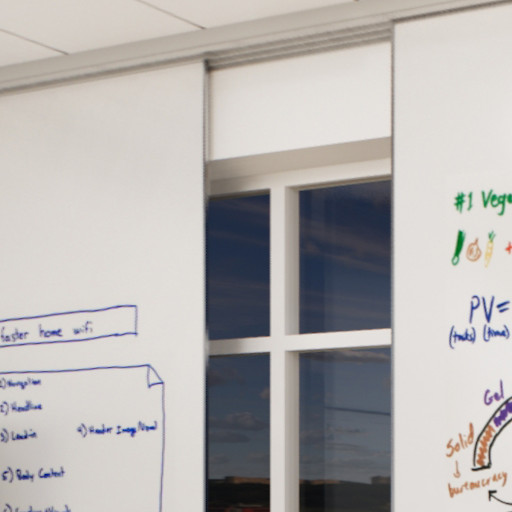 faster home wifi
1) Navigation
2) Headline
3) Lead-in
4) Header Image/Visual
5) Body Content
#1 Vega
+
PV=
(tasks) (time)
Gel
Solid
↓
bureaucracy